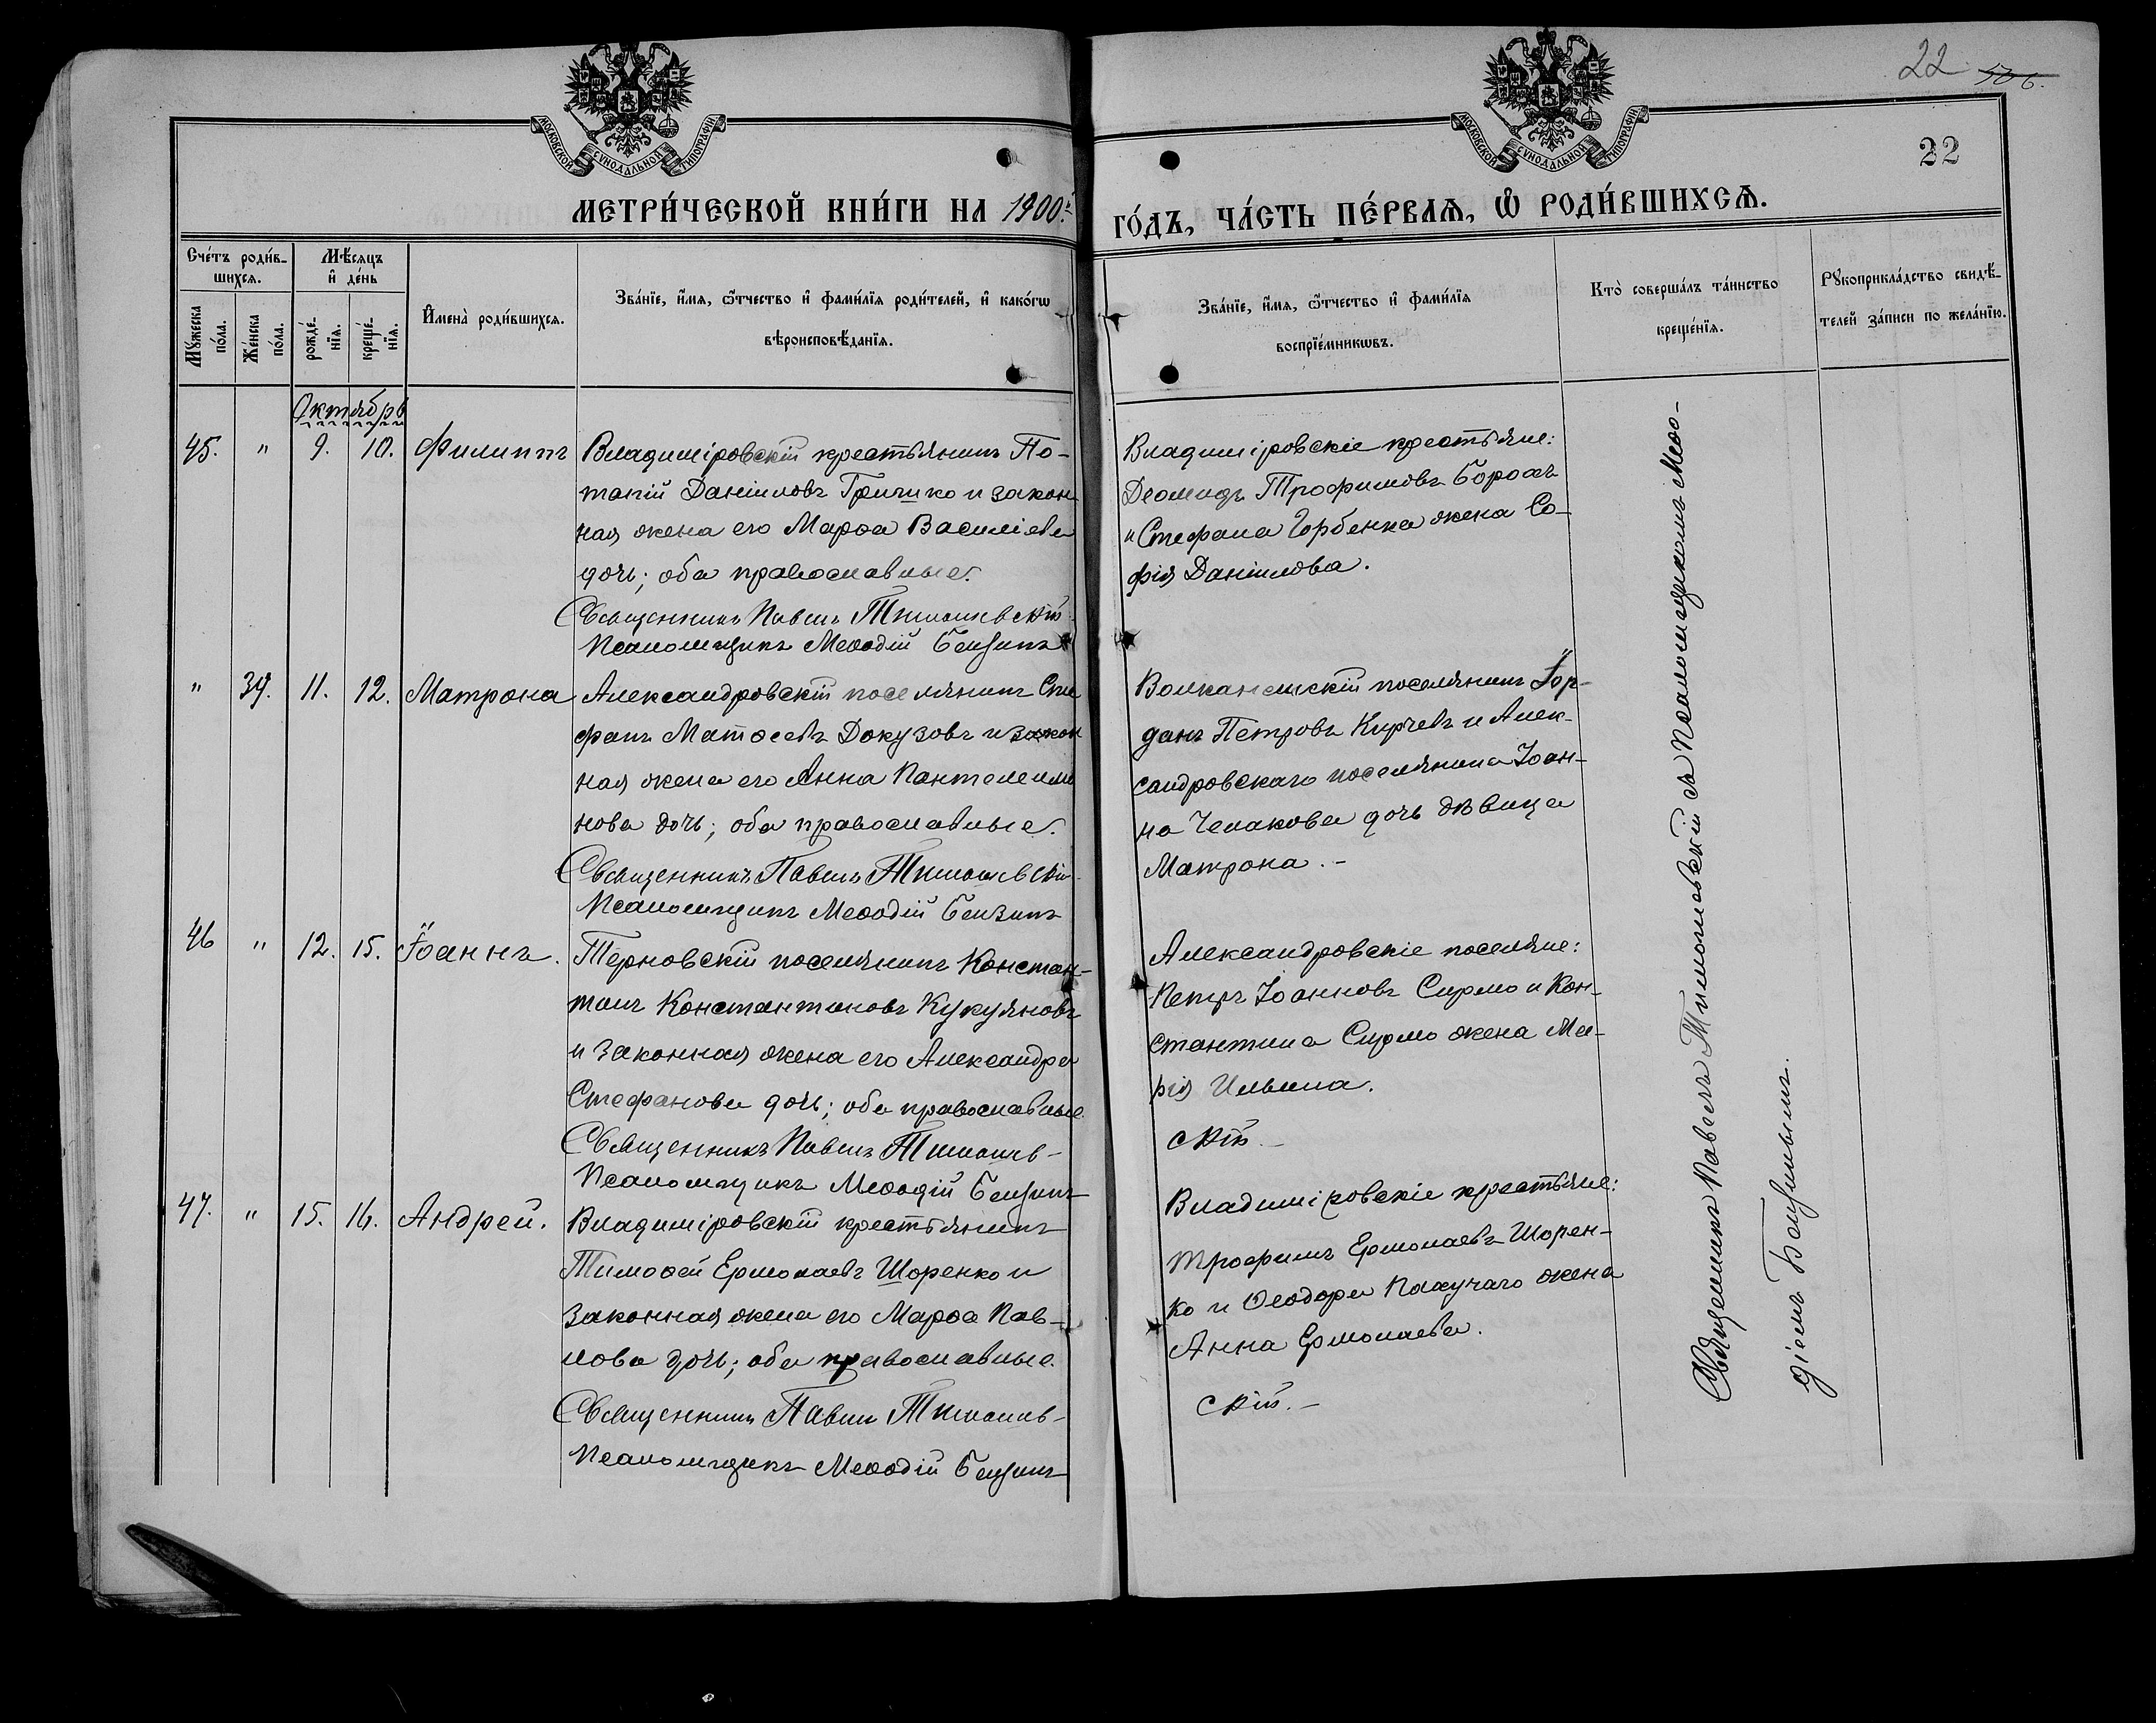 22 506.
22
МОСКОВСКОЙ СѴНОДАЛЬНОЙ ТИПОГРАФІИ
МОСКОВСКОЙ СѴНОДАЛЬНОЙ ТИПОГРАФІИ
МЕТРИ́ЧЕСКОЙ КНИ́ГИ НА 1900й ГО́ДЪ, ЧА́СТЬ ПЕ́РВАѦ, Ѡ҆ РОДИ́ВШИХСѦ.
Сче́тъ роди́в-
шихсѧ.
Мꙋ́жеска по́ла.
Же́нска по́ла.
Мѣ́сѧцъ
и҆ де́нь
рожде́-
нїѧ.
креще́-
нїѧ.
И҆мена̀ роди́вшихсѧ.
Зва́нїе, и҆́мѧ, ѻ҆́тчество и҆ фами́лїѧ роди́телей, и҆ како́гѡ
вѣроисповѣ́данїѧ.
Зва́нїе, и҆́мѧ, ѻ҆́тчество и҆ фами́лїѧ
воспрїе́мникѡвъ.
Кто̀ соверша́лъ та́инство
креще́нїѧ.
Рꙋкоприкла́дство свидѣ́-
телей за́писи по жела́нїю.
Октябрь
45. " 9. 10. Филиппъ
Владиміровскій крестьянинъ По-
тапій Даніиловъ Гричико и закон
ная жена его Марѳа Василіева
дочь; оба православные.
Священникъ Павелъ Тимошевскій
Псаломщикъ Меѳодій Бензинъ
Владиміровскіе крестьяне:
Деомидъ Трофимовъ Борохъ
и Стефана Горбенка жена Со-
фія Даніилова.
" 39. 11. 12. Матрона
Александровскій поселянинъ Сте
фанъ Матѳеевъ Докузовъ и закон
ная жена его Анна Пантелеимо
нова дочь; оба православные.
Священникъ Павелъ Тимошевскій
Псаломщикъ Меѳодій Бензинъ
Волканешскій поселянинъ Іор-
данъ Петровъ Кирчевъ и Алек-
сандровскаго поселянина Іоан-
на Челакова дочь дѣвица
Матрона. -
46 " 12. 15. Іоаннъ.
Терновскій поселянинъ Констан-
тинъ Константиновъ Кукуяновъ
и законная жена его Александра
Стефанова дочь; оба православные
Священникъ Павелъ Тимошев-
скій -
Псаломщикъ Меѳодій Бензинъ
Александровскіе поселяне:
Петръ Іоанновъ Сирмо и Кон-
стантина Сирмо жена Ма-
рія Ильина.
47. " 15. 16. Андрей.
Владиміровскій крестьянинъ
Тимоѳей Ермолаевъ Шоренко и
законная жена его Марѳа Пав-
лова дочь; оба православные.
Священникъ Павелъ Тимошев-
скій. -
Псаломщикъ Меѳодій Бензинъ
Владиміровскіе крестьяне:
Трофимъ Ермолаевъ Шорен-
ко и Ѳеодора Палучаго жена
Анна Ермолаева.
Священникъ Павелъ Тимошевскій съ Псаломщикомъ Меѳо-
діемъ Бензинымъ.